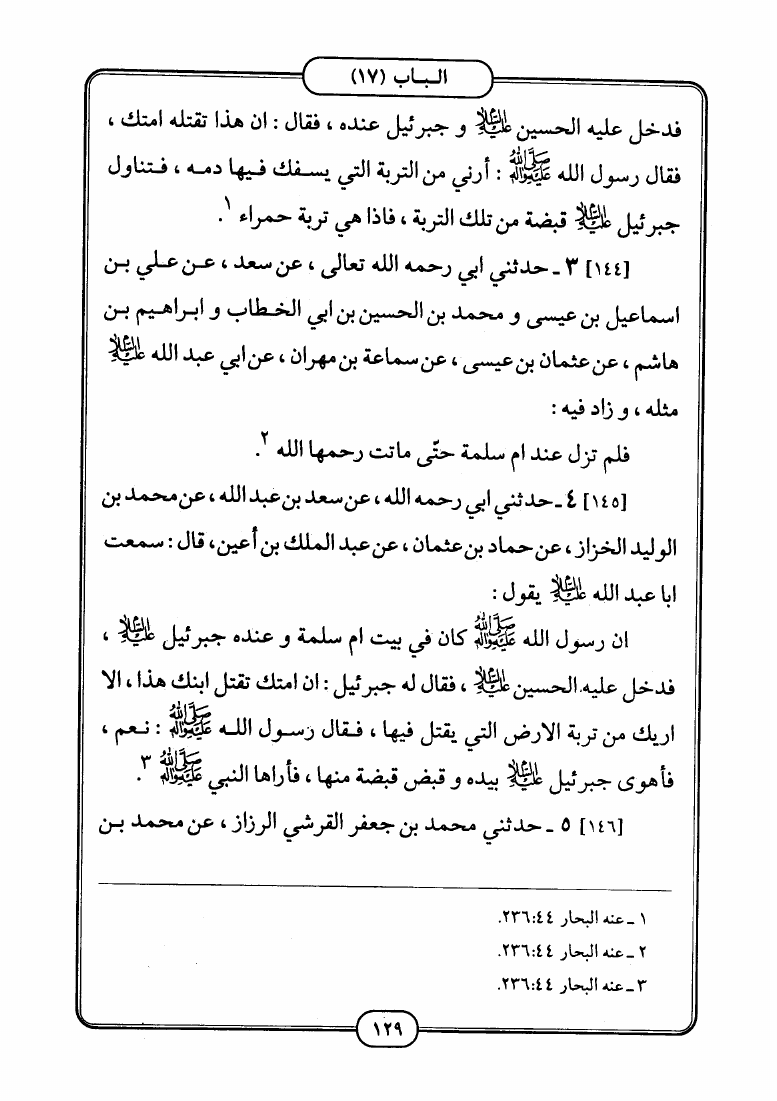 الـبـاب (١٧)
فدخل عليه الحسين عليه السلام و جبرئيل عنده ، فقال : ان هذا تقتله امتك ،
فقال رسول الله صلى الله عليه وآله : أرني من التربة التي يسـفك فـيها دمـه ، فـتناول
جبرئيل عليه السلام قبضة من تلك التربة ، فاذا هي تربة حمراء ١.
[١٤٤] ٣ ـ حدثني ابي رحمه الله تعالى ، عن سعد ، عـن عـلي بـن
اسماعيل بن عيسى و محمد بن الحسين بن ابي الخـطاب و ابـراهـيم بـن
هاشم ، عن عثمان بن عيسى ، عن سماعة بن مهران ، عن ابي عبد الله عليه السلام
مثله ، و زاد فيه :
فلم تزل عند ام سلمة حتّى ماتت رحمها الله ٢.
[١٤٥] ٤ ـ حدثني ابي رحمه الله ، عن سعد بن عبد الله ، عن محمد بن
الوليد الخزاز ، عن حماد بن عثمان ، عن عبد الملك بن أعين، قال : سمعت
ابا عبد الله عليه السلام يقول :
ان رسول الله صلى الله عليه وآله كان في بيت ام سلمة و عنده جبرئيل عليه السلام ،
فدخل عليه الحسين عليه السلام ، فقال له جبرئيل : ان امتك تقتل ابنك هذا ، الا
اريك من تربة الارض التي يقتل فيها ، فـقال رسـول اللـه صلى الله عليه وآله : نـعم ،
فأهوى جبرئيل عليه السلام بيده و قبض قبضة منها ، فأراها النبي صلى الله عليه وآله ٣.
[١٤٦] ٥ ـ حدثني محمد بن جعفر القرشي الرزاز ، عن محمد بـن
١ ـ عنه البحار ٢٣٦:٤٤.
٢ ـ عنه البحار ٢٣٦:٤٤.
٣ ـ عنه البحار ٢٣٦:٤٤.
١٢٩